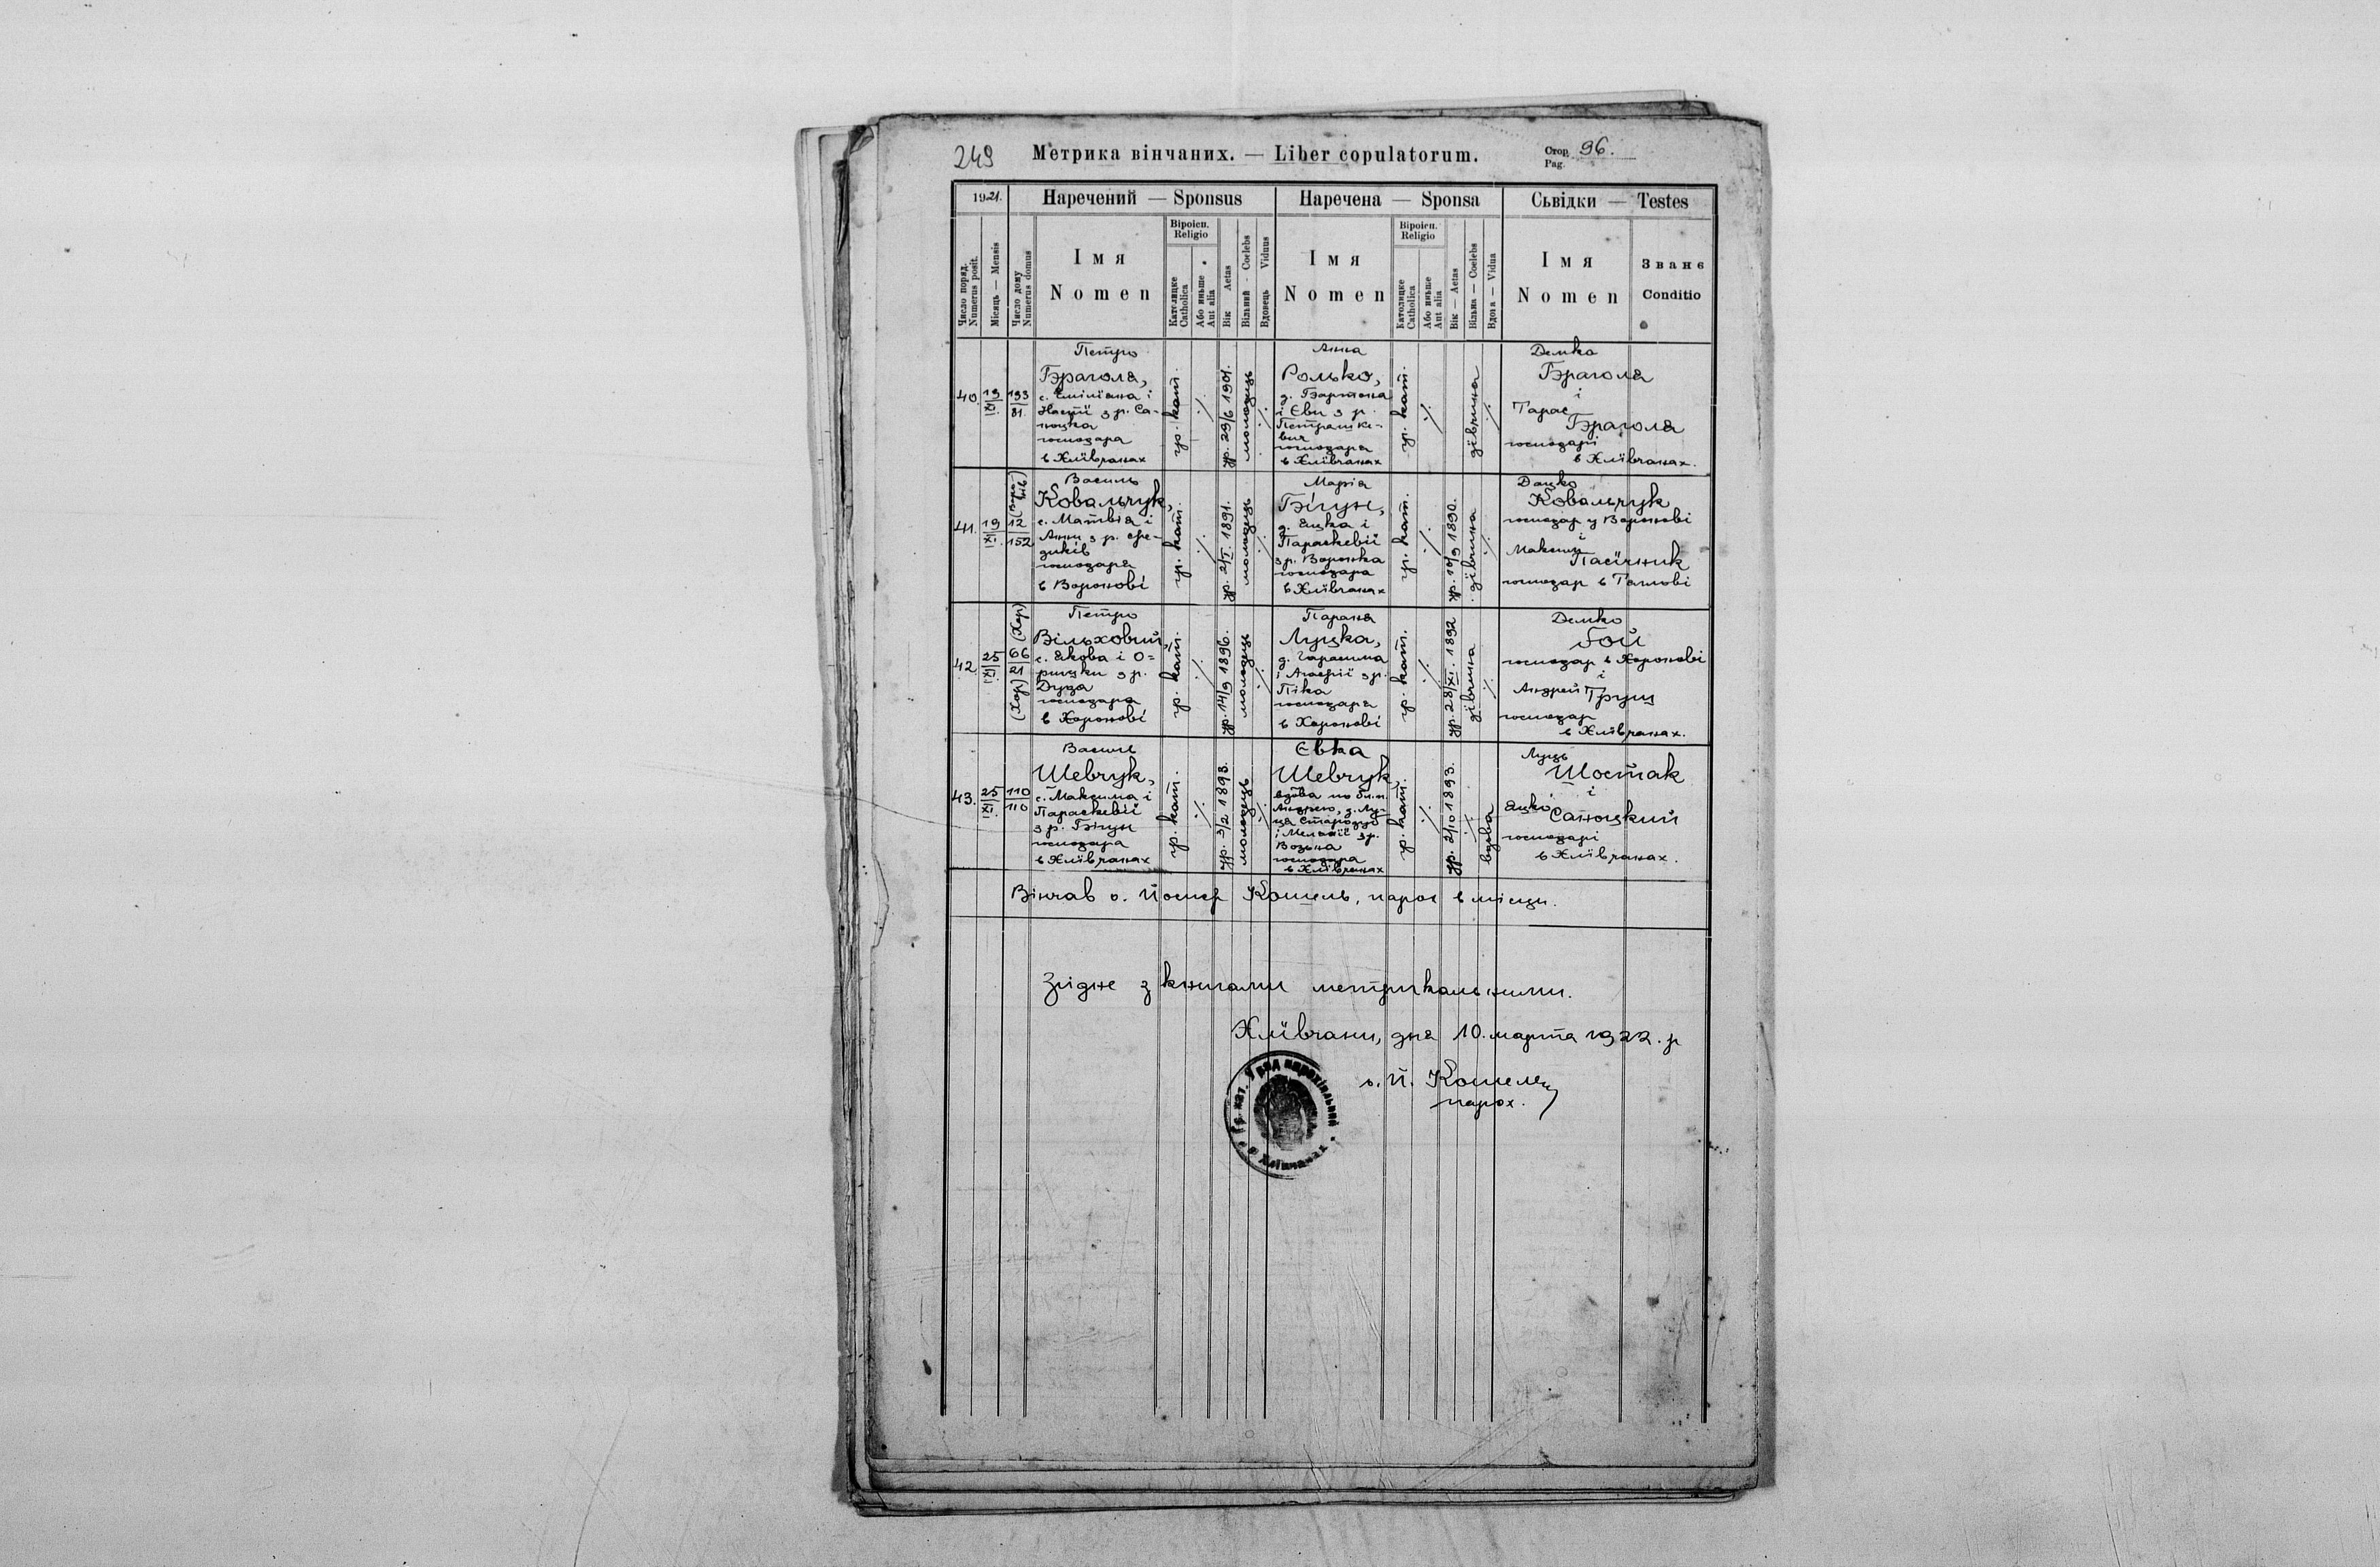 249
Метрика вінчаних. — Liber copulatorum.
Стор. 96.
Pag.
1921.
Наречений — Sponsus
Наречена — Sponsa
Сьвідки — Testes
Число поряд.
Numerus posit.
Місяць — Mensis
Число дому
Numerus domus
Імя
Nomen
Віроісп.
Religio
Католицке
Catholica
Або иньше
Aut alia
Вік Aetas
Вільний - Coelebs
Вдовець Viduus
Імя
Nomen
Віроісп.
Religio
Католицке
Catholica
Або иньше
Aut alia
Вік — Aetas
Вільна — Coelebs
Вдова — Vidua
Імя
Nomen
Званє
Conditio
40.
19
XI.
193
81.
Петро
Брагола,
с. Еміліяна і
Насті з р. Са-
ноцка
господара
в Хлївчанах
гр. кат.
./.
ур. 29/6 1901.
молодець
./.
Анна
Ролько,
д. Бартона
і Єви з р.
господара
в Хлївчанах
гр. кат.
./.
дївчина
./.
Демко
Брагола
і
Тарас
Брагола
господарі
в Хлївчанах.
41.
19
XI.
12
152
Василь
Ковальчук,
с. Матвія і
Анни з р. Сре-
дюків
господара
в Воронові
гр. кат.
./.
ур. 2/I 1891.
молодець
./.
Марія
Бігун,
д. Яцка і
Параскевії
з р. Воронка
господара
в Хлївчанах
гр. кат.
./.
ур. 10/9 1890.
дївчина
./.
Дацко
Ковальчук
господар у Воронові
і
Максим
Пасїчник
господар в
42
25
XI
(Хор)
66
21
(Хор)
Петро
Вільховий,
с. Якова і О-
ришки з р.
Дуда
господара
в Хоронові
гр. кат.
./.
ур. 14/9 1896.
молодець
./.
Параня
Луцка,
д. Гарасима
і Агафії з р.
Піка
господара
в Хоронові
гр. кат.
./.
ур. 28/XI. 1892
дївчина
./.
Демко
Бой
господар в Хоронові
і
Андрей Грущ
господар
в Хлївчанах.
43.
25
XI.
110
110
Василь
Шевчук,
с. Максима і
Параскевії
з р. Бігун
господара
в Хлївчанах
гр. кат.
./.
ур. 3/2 1893.
молодець
./.
Євка
Шевчук,
вдова по бл. п.
Андрею, д. Лу-
ця Стародуб
і Меланії з р.
Возьна
господара
в Хлївчанах
гр. кат.
./.
ур. 2/10 1893.
./.
вдова
Луць
Шостак
і
Яцко
Саноцкий
господарі
в Хлївчанах.
Вінчав о. Йосиф Кошель, парох в місци.
Згідне з книгами метрикальними.
Хлївчани, дня 10. марта 1922. р
о. Й. Кошель
парох.
Гр. кат. Уряд парохіяльний в Хлївчанах